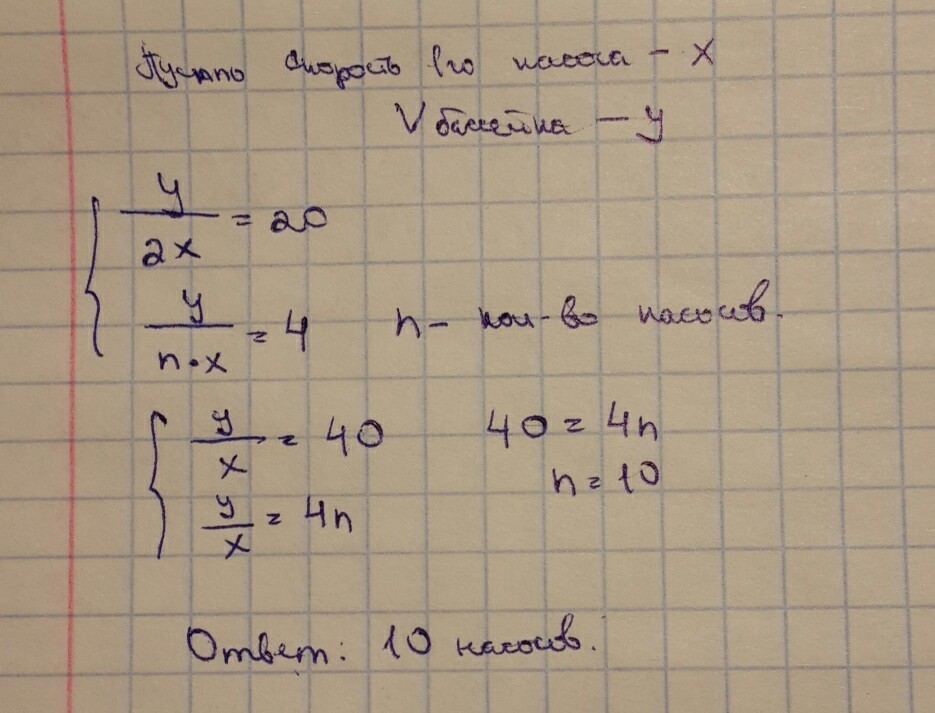 Пусть скорость 1го насоса – x
V бассейна – y
y/2x = 20
y/n·x = 4 n – кол-во насосов.
y/x = 40 40 = 4n
n = 10
y/x = 4n
Ответ: 10 насосов.